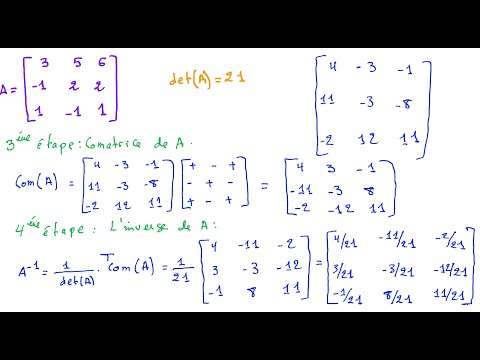 A = [ 3 5 6 ; -1 2 2 ; 1 -1 1 ]
det(A) = 21
[ 4 -3 -1 ; 11 -3 -8 ; -2 12 11 ]
3ème étape : Comatrice de A.
Com(A) = [ 4 -3 -1 ; 11 -3 -8 ; -2 12 11 ] [ + - + ; - + - ; + - + ] = [ 4 3 -1 ; -11 -3 8 ; -2 -12 11 ]
4ème étape : L'inverse de A :
A⁻¹ = 1/det(A) . ᵀCom(A) = 1/21 [ 4 -11 -2 ; 3 -3 -12 ; -1 8 11 ] = [ 4/21 -11/21 -2/21 ; 3/21 -3/21 -12/21 ; -1/21 8/21 11/21 ]